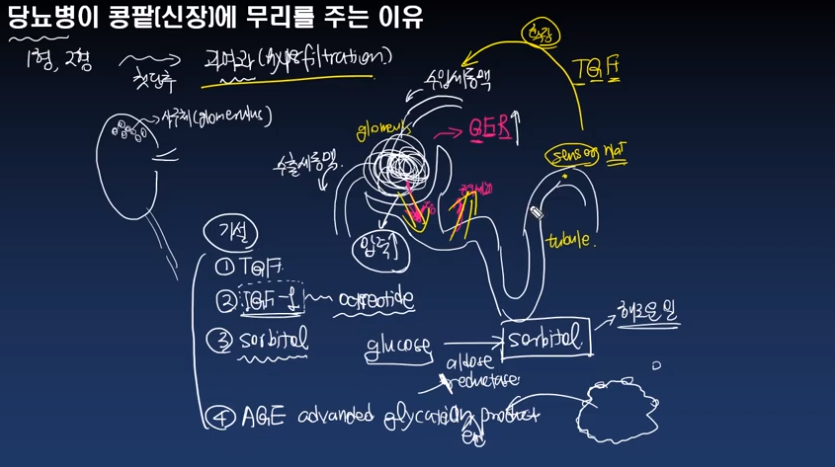 당뇨병이 콩팥(신장)에 무리를 주는 이유
1형, 2형
첫단추
과여과 (hyperfiltration)
사구체 (glomerulus)
수입세동맥
TGF
GFR↑
sensor
수출세동맥
압력↑
tubule
가설
① TGF
② IGF-1 octreotide
③ sorbitol
glucose
sorbitol
해로운 일
aldose
reductase
④ AGE advanced glycation product
end